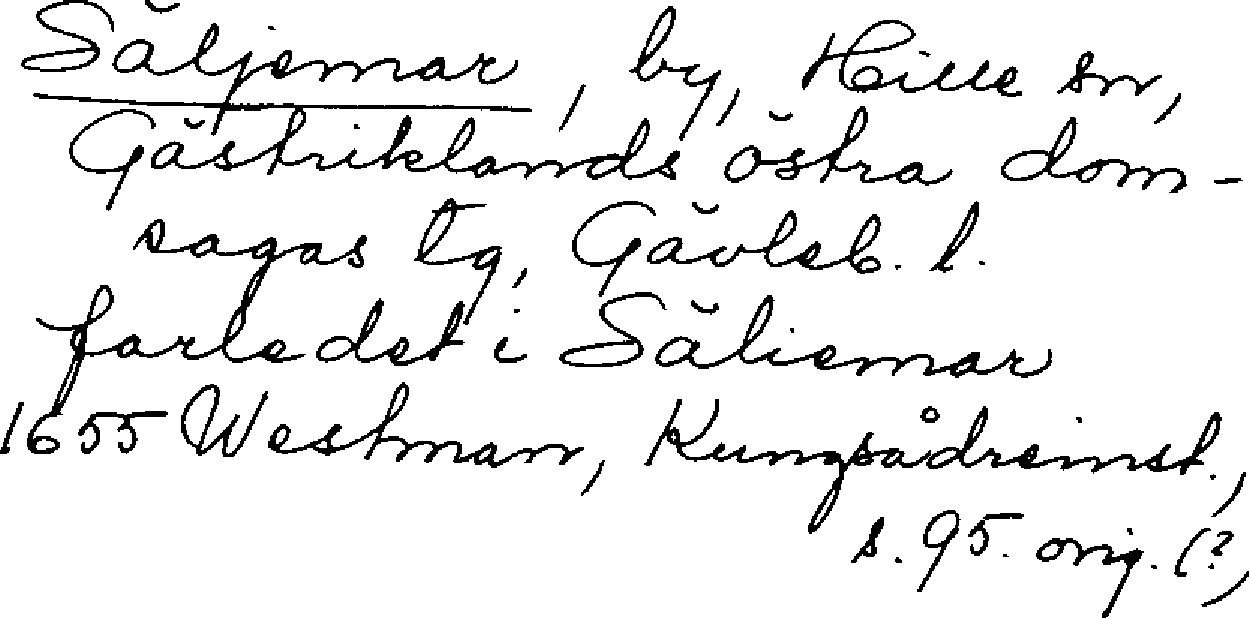 Säljemar, by, Hille sn,
Gästriklands östra dom-
sagas tg, Gävleb. l.
farledet i Säliemar
1655 Westman, Kungsådreinst.,
s. 95. orig. (?)